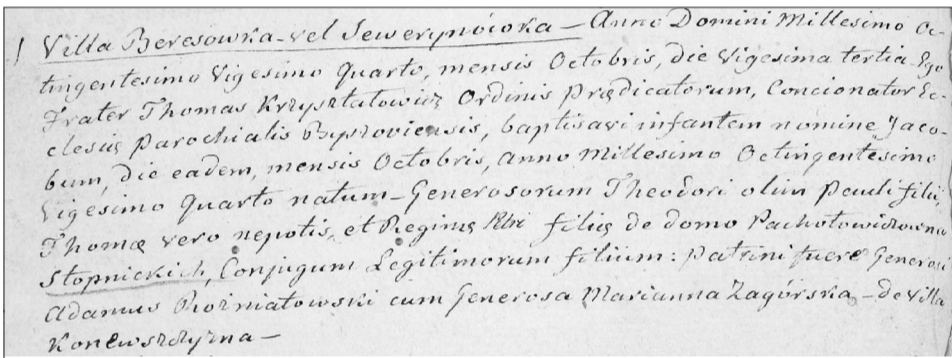 ! Villa Beresowka vel Sewerynówka — Anno Domini Millesimo Oc-
tingentesimo Vigesimo Quarto, mensis Octobris, die Vigesima tertia. Ego
Frater Thomas Krzyształowicz Ordinis Prædicatorum, Concionator Ec-
clesię Parochialis Byszoviensis, baptisavi infantem nomine Jaco-
bum, die eadem, mensis Octobris, anno Millesimo Octingentesimo
Vigesimo Quarto natum — Generosorum Theodori olim Pauli filii,
Thomæ vero nepotis, et Reginę Petri filię de domo Pachołowiczowna
Stopnickich, Conjugum Legitimorum filium: Patrini fuere Generosi
Adamus Rożniatowski cum Generosa Marianna Zagórska — de Villa
Konewszczyzna —